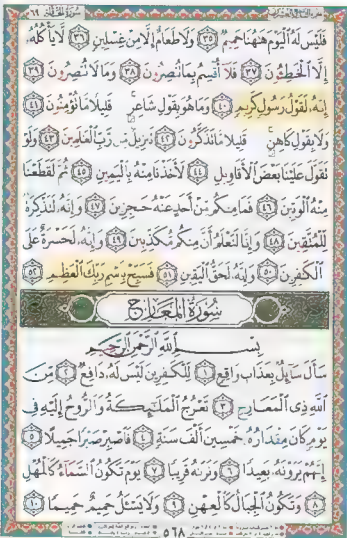 سورة الحاقة ٦٩
فَلَيْسَ لَهُ ٱلْيَوْمَ هَٰهُنَا حَمِيمٌ ٣٥ وَلَا طَعَامٌ إِلَّا مِنْ غِسْلِينٍ ٣٦ لَّا يَأْكُلُهُۥٓ
إِلَّا ٱلْخَٰطِـُٔونَ ٣٧ فَلَآ أُقْسِمُ بِمَا تُبْصِرُونَ ٣٨ وَمَا لَا تُبْصِرُونَ ٣٩
إِنَّهُۥ لَقَوْلُ رَسُولٍ كَرِيمٍ ٤٠ وَمَا هُوَ بِقَوْلِ شَاعِرٍ ۚ قَلِيلًا مَّا تُؤْمِنُونَ ٤١
وَلَا بِقَوْلِ كَاهِنٍ ۚ قَلِيلًا مَّا تَذَكَّرُونَ ٤٢ تَنزِيلٌ مِّن رَّبِّ ٱلْعَٰلَمِينَ ٤٣ وَلَوْ
تَقَوَّلَ عَلَيْنَا بَعْضَ ٱلْأَقَاوِيلِ ٤٤ لَأَخَذْنَا مِنْهُ بِٱلْيَمِينِ ٤٥ ثُمَّ لَقَطَعْنَا
مِنْهُ ٱلْوَتِينَ ٤٦ فَمَا مِنكُم مِّنْ أَحَدٍ عَنْهُ حَٰجِزِينَ ٤٧ وَإِنَّهُۥ لَتَذْكِرَةٌ
لِّلْمُتَّقِينَ ٤٨ وَإِنَّا لَنَعْلَمُ أَنَّ مِنكُم مُّكَذِّبِينَ ٤٩ وَإِنَّهُۥ لَحَسْرَةٌ عَلَى
ٱلْكَٰفِرِينَ ٥٠ وَإِنَّهُۥ لَحَقُّ ٱلْيَقِينِ ٥١ فَسَبِّحْ بِٱسْمِ رَبِّكَ ٱلْعَظِيمِ ٥٢
سُورَةُ الْمَعَارِجِ
بِسْمِ ٱللَّهِ ٱلرَّحْمَٰنِ ٱلرَّحِيمِ
سَأَلَ سَآئِلٌۢ بِعَذَابٍ وَاقِعٍ ١ لِّلْكَٰفِرِينَ لَيْسَ لَهُۥ دَافِعٌ ٢ مِّنَ
ٱللَّهِ ذِى ٱلْمَعَارِجِ ٣ تَعْرُجُ ٱلْمَلَٰٓئِكَةُ وَٱلرُّوحُ إِلَيْهِ فِى
يَوْمٍ كَانَ مِقْدَارُهُۥ خَمْسِينَ أَلْفَ سَنَةٍ ٤ فَٱصْبِرْ صَبْرًا جَمِيلًا ٥
إِنَّهُمْ يَرَوْنَهُۥ بَعِيدًا ٦ وَنَرَىٰهُ قَرِيبًا ٧ يَوْمَ تَكُونُ ٱلسَّمَآءُ كَٱلْمُهْلِ
٨ وَتَكُونُ ٱلْجِبَالُ كَٱلْعِهْنِ ٩ وَلَا يَسْـَٔلُ حَمِيمٌ حَمِيمًا ١٠
٥٦٨